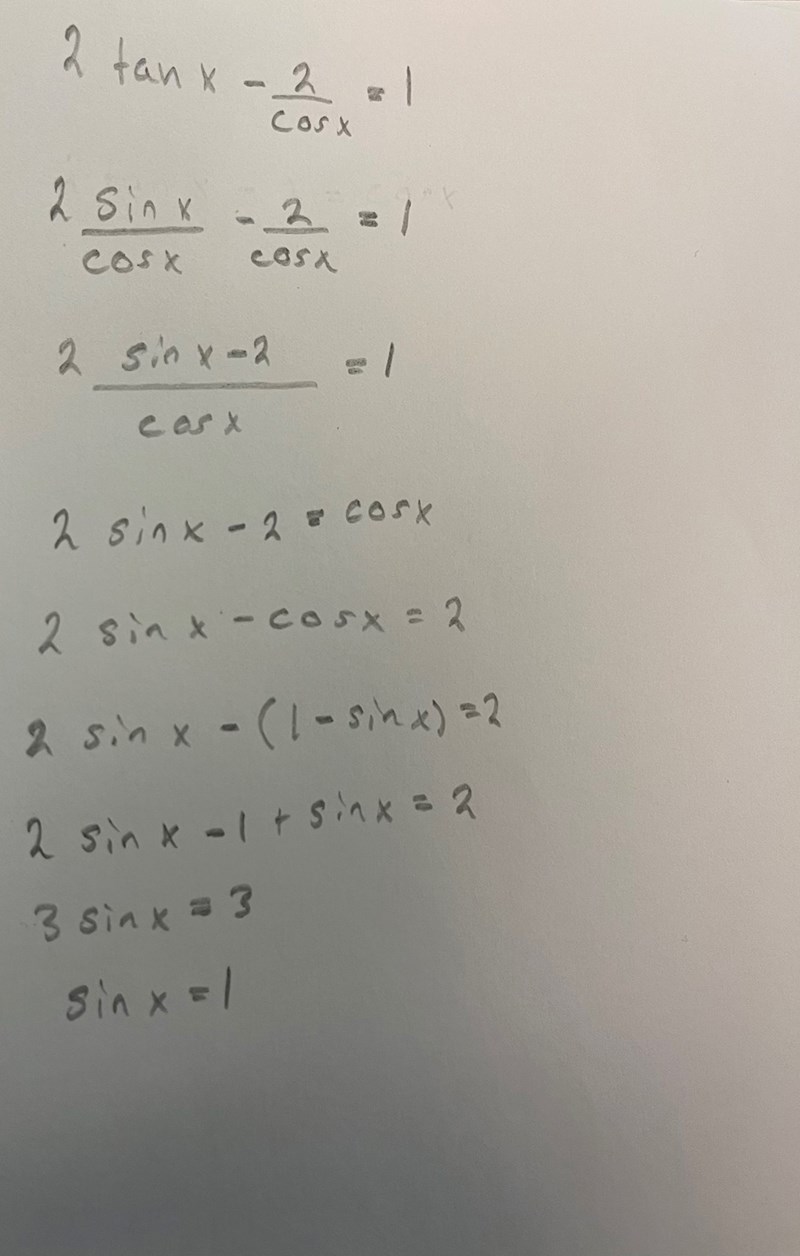 2 tan x - 2/cos x = 1
2 sin x/cos x - 2/cos x = 1
2 sin x - 2/cos x = 1
2 sin x - 2 = cos x
2 sin x - cos x = 2
2 sin x - (1 - sin x) = 2
2 sin x - 1 + sin x = 2
3 sin x = 3
sin x = 1